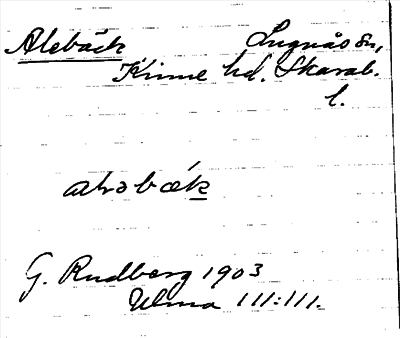 Alebäck Lugnås sn,
Kinne hd. Skarab.
l.
aləbæk
G. Rudberg 1903
Ulma 111:111.